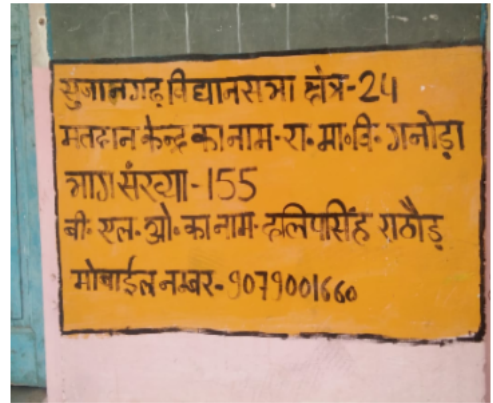 सुजानगढ़ विद्यानसभा क्षेत्र-24
मतदान केन्द्र का नाम-रा.मा.वि. गनोड़ा
भाग संख्या-155
बी. एल. ओ. का नाम-दलिपसिंह राठौड़
मोबाईल नम्बर-9079001660